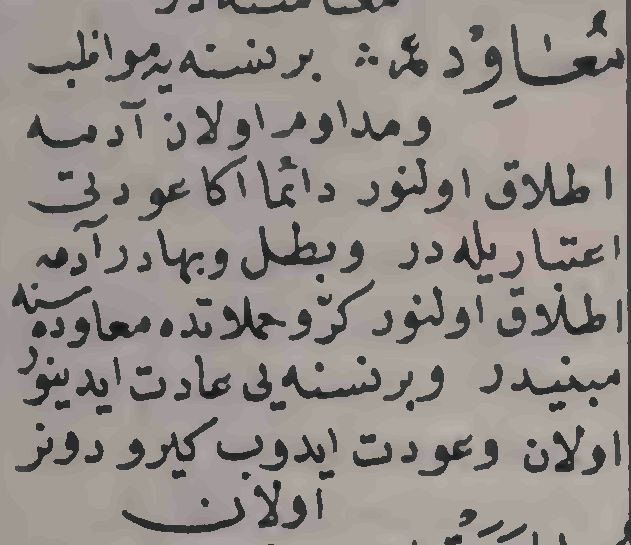 مُعَاوِدْ عر ؞ برنسنه‌یه مواظب
ومداوم اولان آدمه
اطلاق اولنور دائما اكا عودتی
اعتباریله در وبطل وبهادر آدمه
اطلاق اولنور كرّ و حملاتده معاوده سنه
مبنیدر وبرنسنه‌یی عادت ایدینور
اولان وعودت ایدوب كیرو دونر
اولان